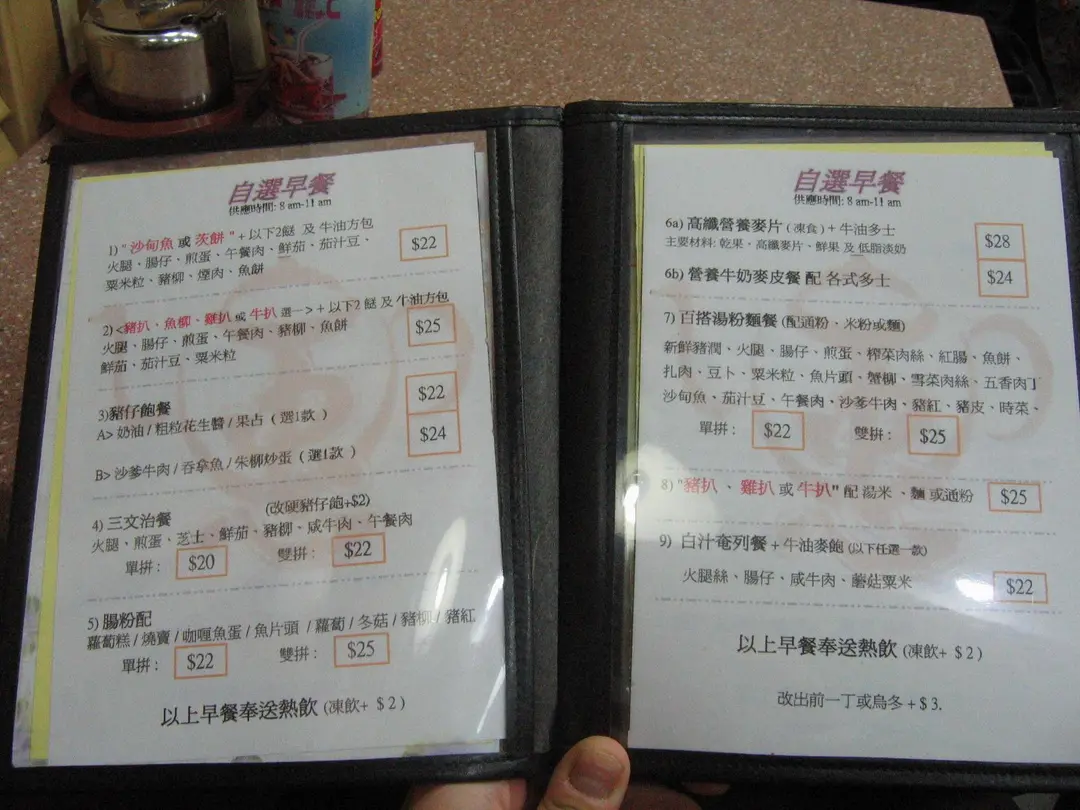 自選早餐
供應時間: 8 am-11 am
1) " 沙甸魚 或 茨餅 " + 以下2餸 及 牛油方包
火腿、腸仔、煎蛋、午餐肉、鮮茄、茄汁豆、
粟米粒、豬柳、煙肉、魚餅
$22
2) <豬扒、魚柳、雞扒 或 牛扒 選一> + 以下2 餸 及 牛油方包
火腿、腸仔、煎蛋、午餐肉、豬柳、魚餅
鮮茄、茄汁豆、粟米粒
$25
3)豬仔飽餐
A> 奶油 / 粗粒花生醬 / 果占 ( 選1款 )
$22
B> 沙爹牛肉 / 吞拿魚 / 朱柳炒蛋 ( 選1款 )
$24
(改硬豬仔飽+$2)
4) 三文治餐
火腿、煎蛋、芝士、鮮茄、豬柳、咸牛肉、午餐肉
單拼 : $20 雙拼 : $22
5) 腸粉配
蘿蔔糕 / 燒賣 / 咖喱魚蛋 / 魚片頭 / 蘿蔔 / 冬菇 / 豬柳 / 豬紅
單拼 : $22 雙拼 : $25
以上早餐奉送熱飲 (凍飲+ $ 2 )
自選早餐
供應時間: 8 am-11 am
6a) 高纖營養麥片 ( 凍食 ) + 牛油多士
主要材料: 乾果、高纖麥片、鮮果 及 低脂淡奶
$28
6b) 營養牛奶麥皮餐 配 各式多士
$24
7) 百搭湯粉麵餐 (配通粉、米粉或麵)
新鮮豬潤、火腿、腸仔、煎蛋、榨菜肉絲、紅腸、魚餅、
扎肉、豆卜、粟米粒、魚片頭、蟹柳、雪菜肉絲、五香肉丁
沙甸魚、茄汁豆、午餐肉、沙爹牛肉、豬紅、豬皮、時菜、
單拼 : $22 雙拼 : $25
8) "豬扒 、 雞扒 或 牛扒" 配 湯米 、麵 或通粉
$25
9) 白汁奄列餐 + 牛油麥飽 (以下任選一款)
火腿絲、腸仔、咸牛肉、蘑菇粟米
$22
以上早餐奉送熱飲 (凍飲+ $ 2 )
改出前一丁或烏冬 + $ 3.